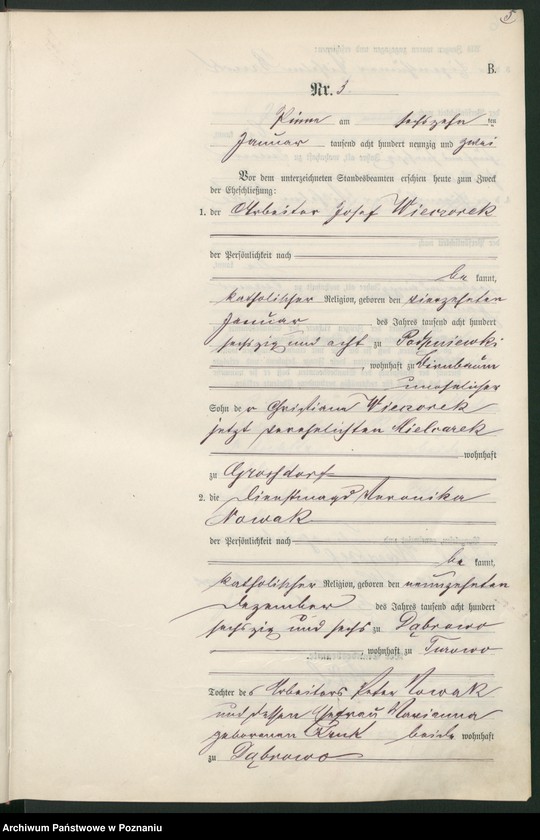 5
B.
Nr. 3.
Pinne am sechszehn ten
Januar tausend acht hundert neunzig und zwei
Vor dem unterzeichneten Standesbeamten erschien heute zum Zweck
der Eheschließung:
1. der Arbeiter Josef Wieczorek
der Persönlichkeit nach
be kannt,
katholischer Religion, geboren den vierzehnten
Januar des Jahres tausend acht hundert
sechszig und acht zu
, wohnhaft zu Birnbaum
unehelicher
Sohn de r Christiana Wieczorek
jetzt verehelichten Mielcarek
wohnhaft
zu Grossdorf
2. die Dienstmagd Veronika
Nowak
der Persönlichkeit nach
be kannt,
katholischer Religion, geboren den neunzehnten
Dezember des Jahres tausend acht hundert
sechszig und sechs zu Dąbrowo
, wohnhaft zu Turowo
Tochter de s Arbeiters Peter Nowak
und dessen Ehefrau Marianna
geborenen beide wohnhaft
zu Dąbrowo
Archiwum Państwowe w Poznaniu